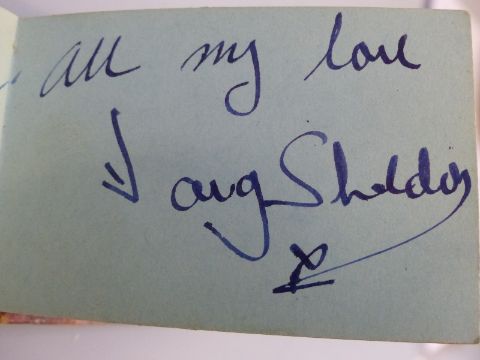 all my love
Doug Sheldon
x